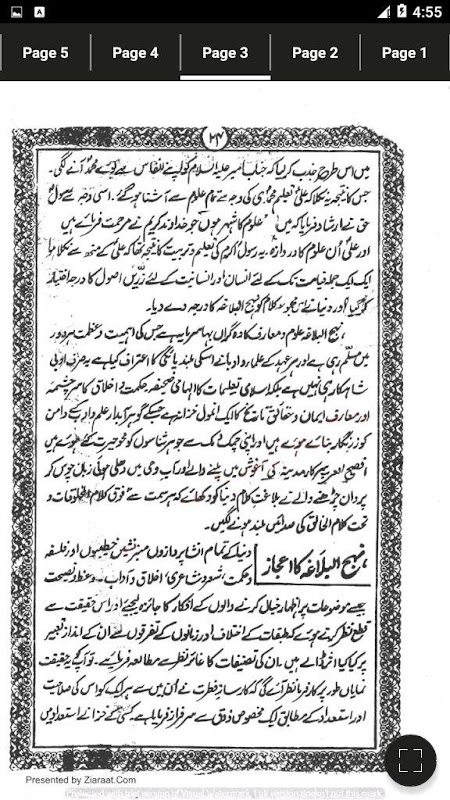 4:55
Page 5 Page 4 Page 3 Page 2 Page 1
۲۴
میں اس طرح جذب کر لیا کہ جناب امیر علیہ السلام کو اپنے انفاس سے بوئے محمدؐ آنے لگی۔
جس کا نتیجہ یہ نکلا کہ علیؑ تعلیم محمدی کی وجہ سے تمام علوم سے آشنا ہو گئے۔ اسی وجہ سے رسولؐ
حق نے ارشاد فرمایا کہ میں علوم کا شہر ہوں جو خداوند کریم نے مرحمت فرمائے ہیں
اور علیؑ اُن علوم کا دروازہ۔ یہ رسول اکرمؐ کی تعلیم و تربیت کا نتیجہ تھا کہ علیؑ کے منھ سے نکلا ہوا
ایک ایک جملہ قیامت تک کے لئے انسان اور انسانیت کے لئے زرّیں اصول کا درجہ اختیار
کر گیا اور دنیا نے اس مجموعہ کلام کو نہج البلاغہ کا درجہ دے دیا۔
نہج البلاغہ علوم و معارف کا وہ گراں بہا سرمایہ ہے جس کی اہمیت و عظمت ہر دور
میں مسلّم رہی ہے اور ہر عہد کے علماء و ادباء نے اسکی بلند پائگی کا اعتراف کیا ہے یہ صرف ادبی
شاہکار ہی نہیں ہے بلکہ اسلامی تعلیمات کا الہامی صحیفہ حکمت و اخلاق کا سرچشمہ
اور معارف ایمان و حقائق تاریخ کا ایک انمول خزانہ ہے جسکے گوہر آبدار علم و ادب کے دامن
کو زرنگار بنائے ہوئے ہیں اور اپنی چمک دمک سے جوہر شناسوں کو محو حیرت کئے ہوئے ہیں
افصح العرب کی آغوش میں پلنے والے اور آب وحی میں دھلی ہوئی زبان چوس کر
پروان چڑھنے والے نے بلاغت کلام دنیا کو دکھائے کہ ہر سمت سے فوق کلام المخلوقات و
تحت کلام الخالق کی صدائیں بلند ہونے لگیں۔
نہج البلاغہ کا اعجاز
دنیا کے تمام انشا پردازوں منبر نشیں خطیبوں اور فلسفہ
و حکمت، شعر و شاعری، اخلاق و آداب، وعظ و نصیحت
جیسے موضوعات پر اظہار خیال کرنے والوں کے افکار کا جائزہ لیجیے اور اس حقیقت سے
قطع نظر کرتے ہوئے کہ طبقات کے اختلاف اور زبانوں کے تفرقوں نے ان کے انداز تعبیر
پر کیا کیا اثر ڈالے ہیں۔ ان کی تصنیفات کا غائر نظر سے مطالعہ فرمائیے۔ تو آپ کو یہ حقیقت
نمایاں طور پر کارفرما نظر آئے گی کہ کارساز فطرت نے اُن میں سے ہر ایک کو اس کی صلاحیت
اور استعداد کے مطابق ایک مخصوص ذوق سے سرفراز فرمایا ہے۔ کسی کے خزانے استعداد میں
Presented by Ziaraat.Com